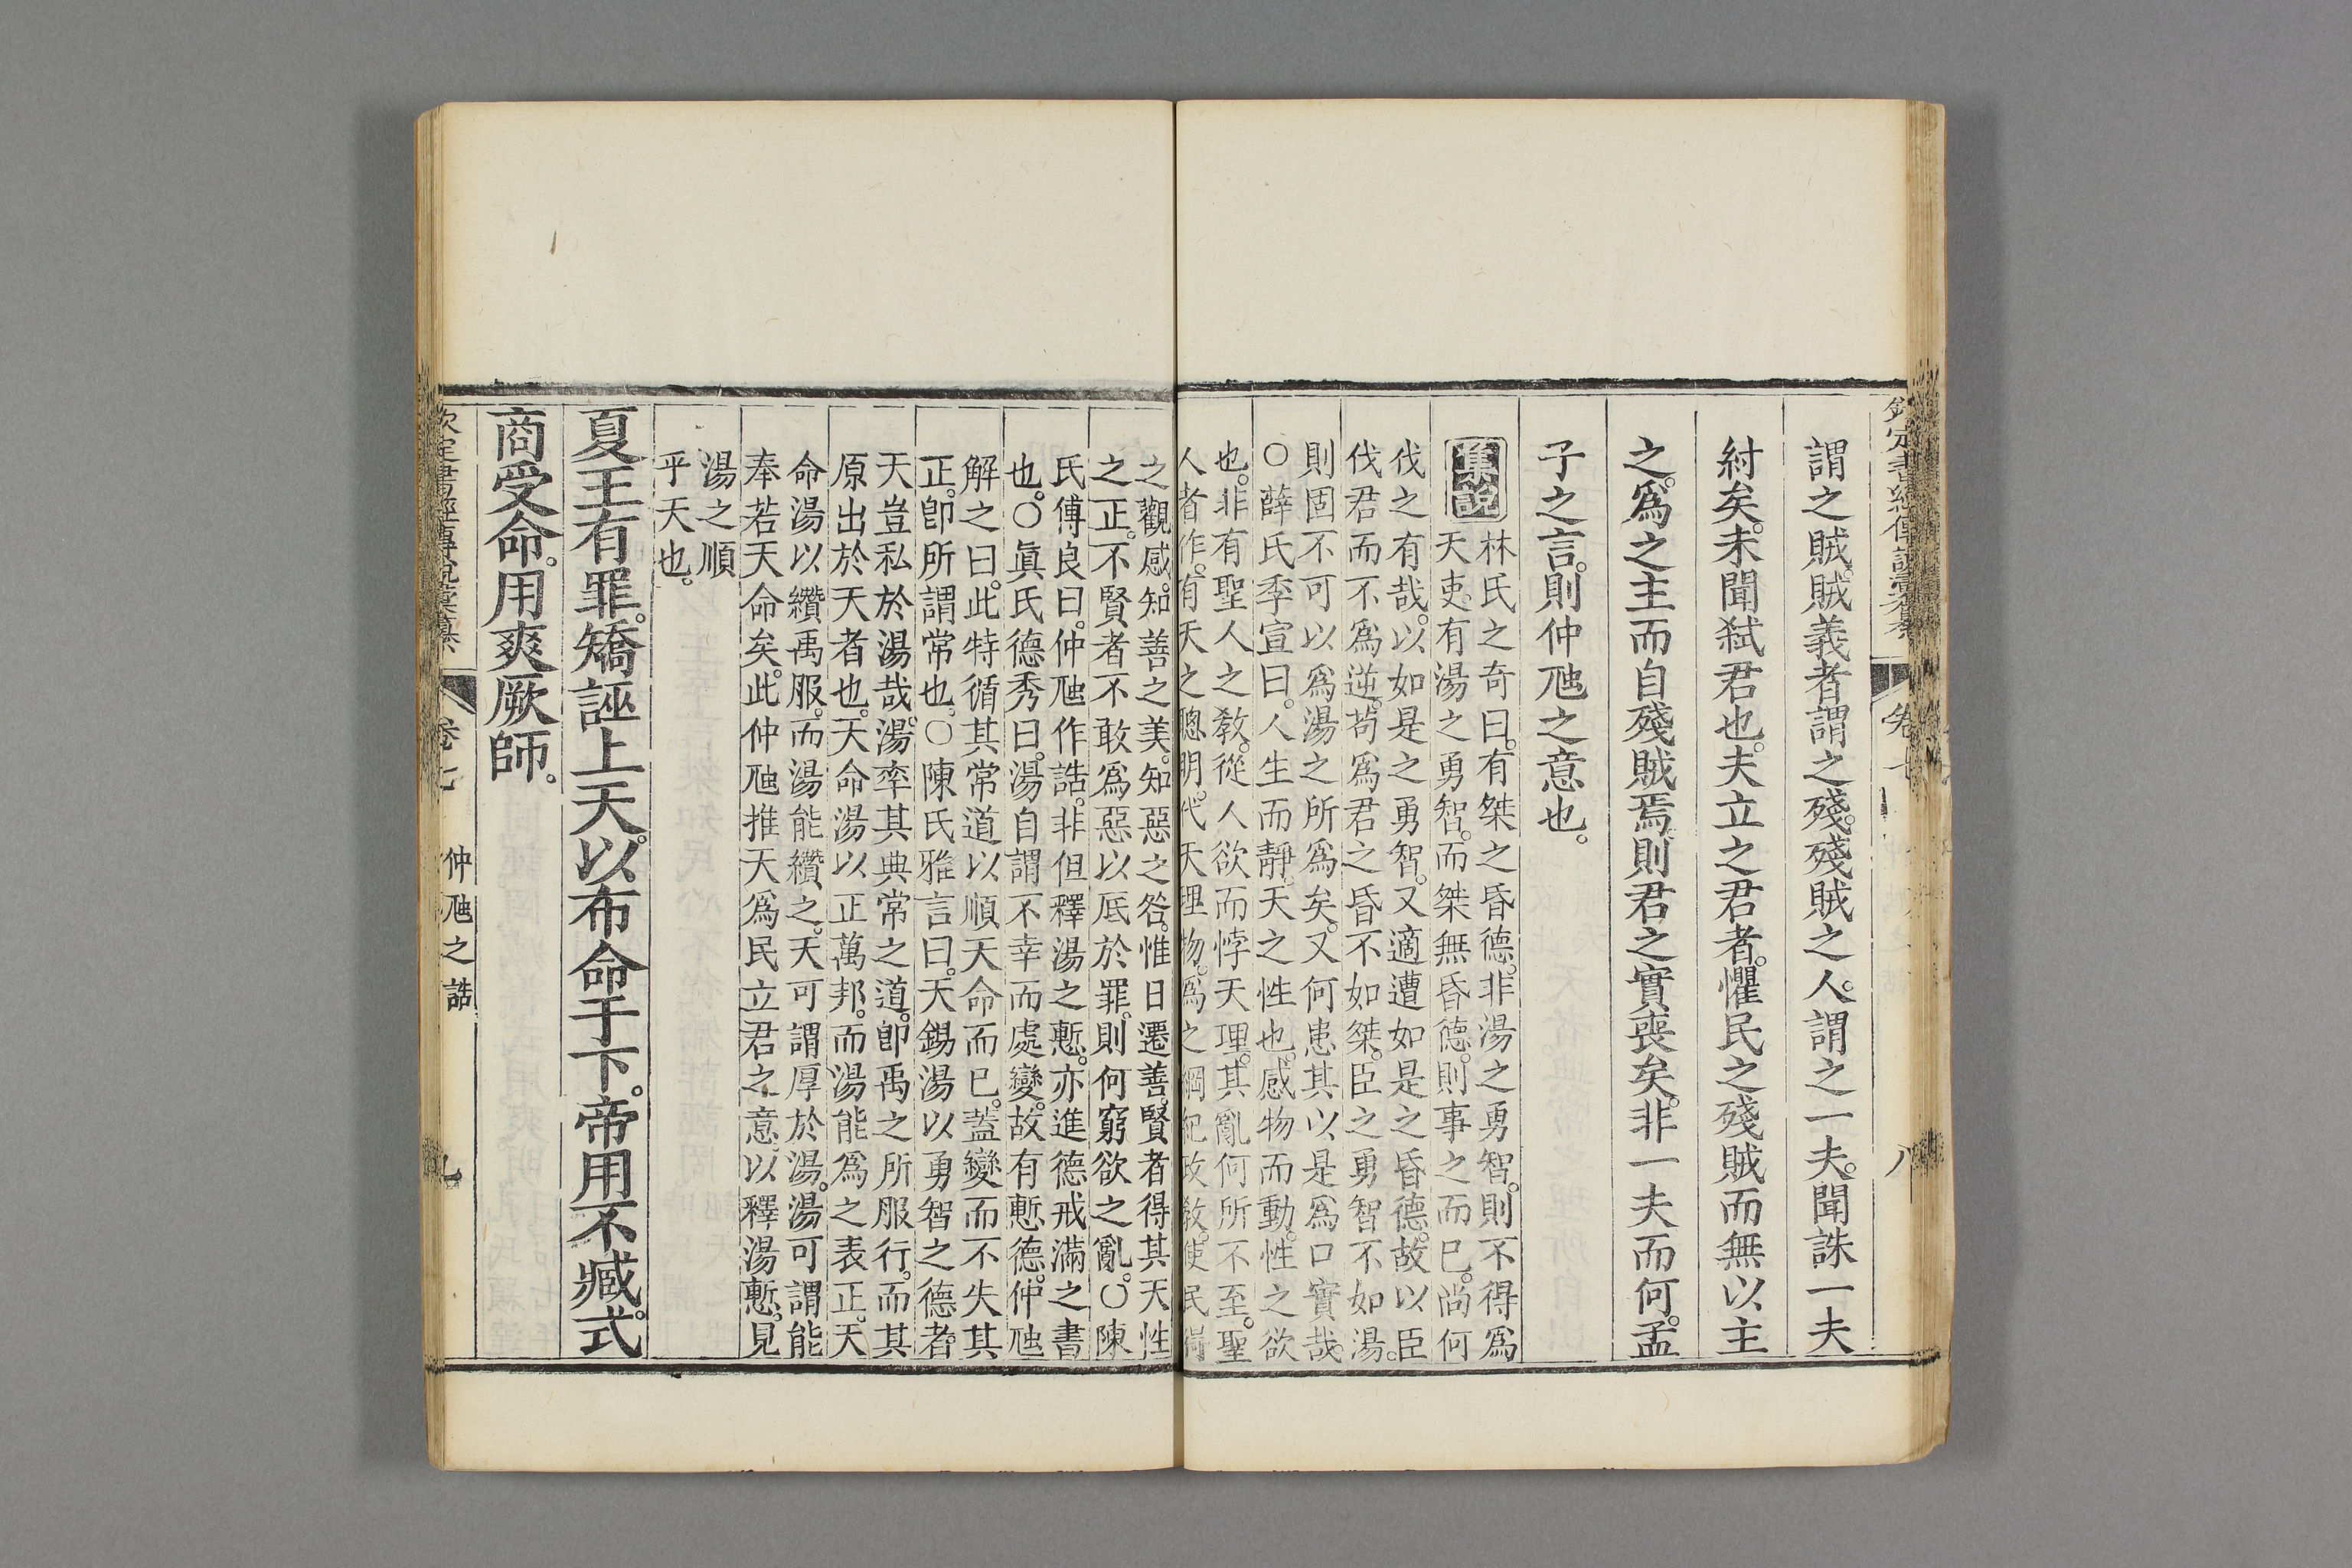 欽定書經傳說彙纂 卷七 八
謂之賊。賊義者謂之殘。殘賊之人。謂之一夫。聞誅一夫
紂矣。未聞弑君也。夫立之君者。懼民之殘賊而無以主
之。爲之主而自殘賊焉。則君之實喪矣。非一夫而何。孟
子之言。則仲虺之意也。
集說
林氏之奇曰。有桀之昏德。非湯之勇智。則不得爲
天吏。有湯之勇智。而桀無昏德。則事之而已。尚何
伐之有哉。以如是之勇智。又適遭如是之昏德。故以臣
伐君而不爲逆。苟爲君之昏不如桀。臣之勇智不如湯。
則固不可以爲湯之所爲矣。又何患其以是爲口實哉。
○薛氏季宣曰。人生而靜。天之性也。感物而動。性之欲
也。非有聖人之敎。從人欲而悖天理。其亂何所不至。聖
人者作。有天之聰明。代天理物。爲之綱紀政敎。使民得
之觀感。知善之美。知惡之咎。惟日遷善。賢者得其天性
之正。不賢者不敢爲惡以厎於罪。則何窮欲之亂。○陳
氏傅良曰。仲虺作誥。非但釋湯之慙。亦進德戒滿之書
也。○眞氏德秀曰。湯自謂不幸而處變。故有慙德。仲虺
解之曰。此特循其常道以順天命而已。蓋變而不失其
正。卽所謂常也。○陳氏雅言曰。天錫湯以勇智之德者。
天豈私於湯哉。湯率其典常之道。卽禹之所服行。而其
原出於天者也。天命湯以正萬邦。而湯能爲之表正。天
命湯以纘禹服。而湯能纘之。天可謂厚於湯。湯可謂能
奉若天命矣。此仲虺推天爲民立君之意。以釋湯慙。見
湯之順
乎天也。
夏王有罪。矯誣上天。以布命于下。帝用不臧。式
商受命。用爽厥師。
欽定書經傳說彙纂 卷七 仲虺之誥 九